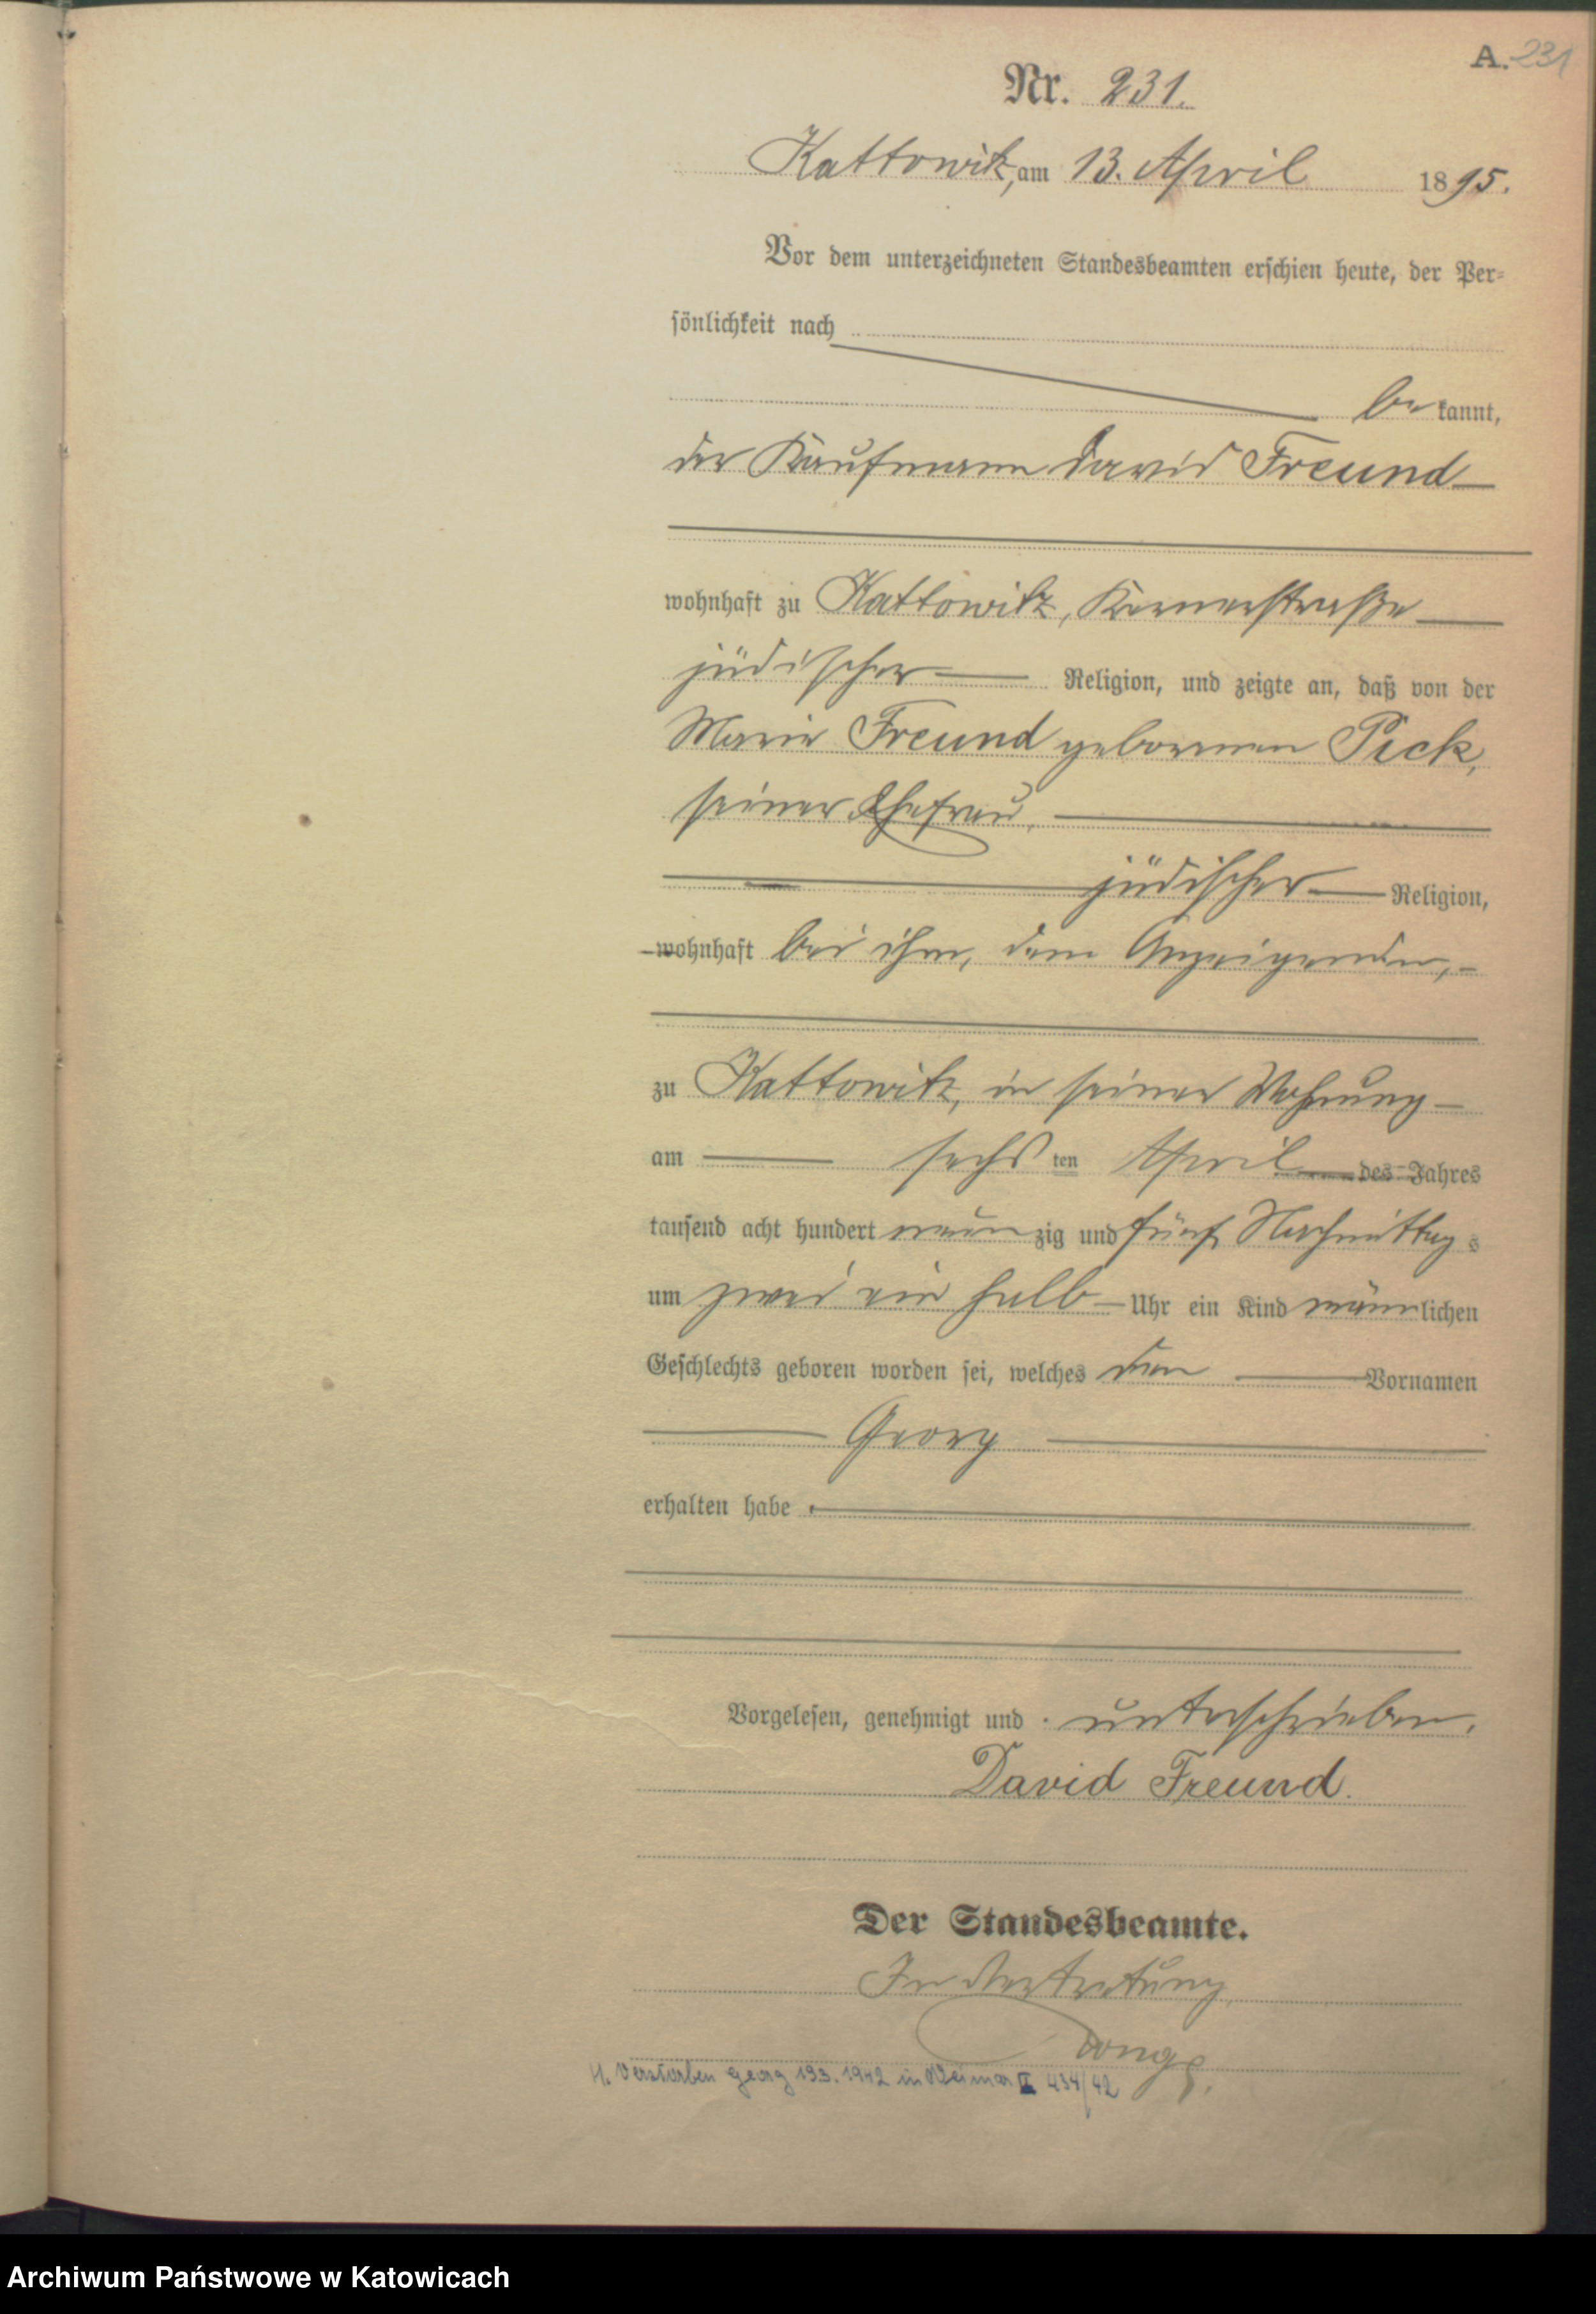 A. 231
Nr. 231.
Kattowitz, am 13. April 1895.
Vor dem unterzeichneten Standesbeamten erschien heute, der Per-
sönlichkeit nach
be kannt,
der Kaufmann David Freund
wohnhaft zu Kattowitz,
jüdischer Religion, und zeigte an, daß von der
Marie Freund geborenen Pick,
seiner Ehefrau,
jüdischer Religion,
wohnhaft bei ihm, dem Anzeigenden,
zu Kattowitz, in seiner Wohnung
am sechs ten April des Jahres
tausend acht hundert neun zig und fünf Nachmittag s
um zwei ein halb Uhr ein Kind männ lichen
Geschlechts geboren worden sei, welches den Vornamen
Georg
erhalten habe.
Vorgelesen, genehmigt und unterschrieben.
David Freund.
Der Standesbeamte.
In Vertretung
H. Verstorben Georg 193. 1942 in Weimar II 434/42
Archiwum Państwowe w Katowicach